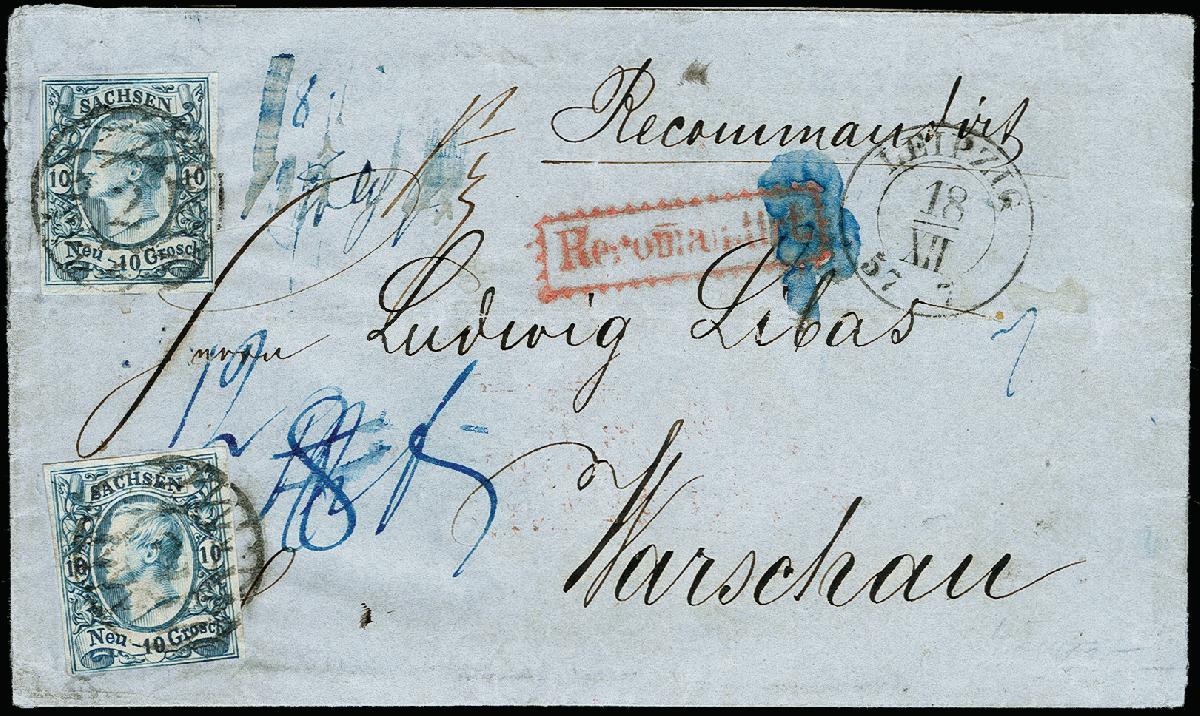 Recommandirt
SACHSEN
10 10
Neu - 10 Grosch
Recomandirt
LEIPZIG
18
XII
57
Ludwig Libas
Warschau
SACHSEN
10 10
Neu - 10 Grosch